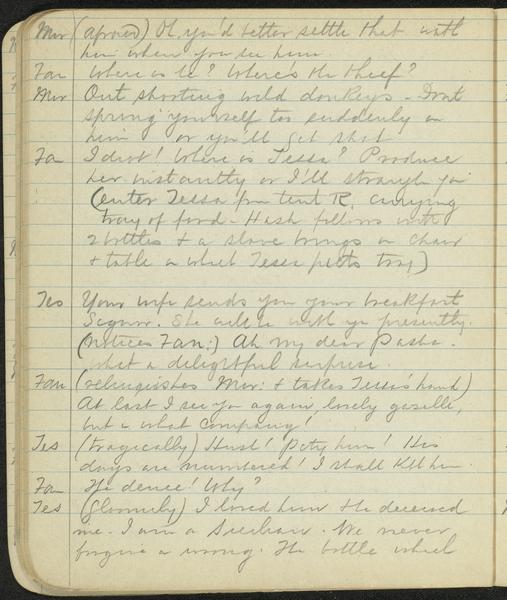 Mor (aproned) Oh, you'd better settle that with
him when you see him.
Fan Where is he? Where's the thief?
Mor Out shooting wild donkeys - Don't
spring yourself too suddenly on
him or you'll get shot
Fa Idiot! Where is Tessa? Produce
her instantly or I'll strangle you
(enter Tessa from tent R, carrying
tray of food - Hash follows with
2 bottles & a slave brings on chair
& table on which Tessa puts tray)
Tes Your wife sends you your breakfast
Signor. She will be with you presently.
(notices Fan:) Ah my dear Pasha -
what a delightful surprise.
Fan (relinquishes Mor: & takes Tessa's hand)
At last I see you again, lovely gazelle,
but in what company!
Tes (tragically) Hush! Pity him! His
days are numbered! I shall kill him.
Fan The deuce! Why?
Tes (gloomily) I loved him He deceived
me. I am a Sicilian. We never
forgive a wrong. The bottle which